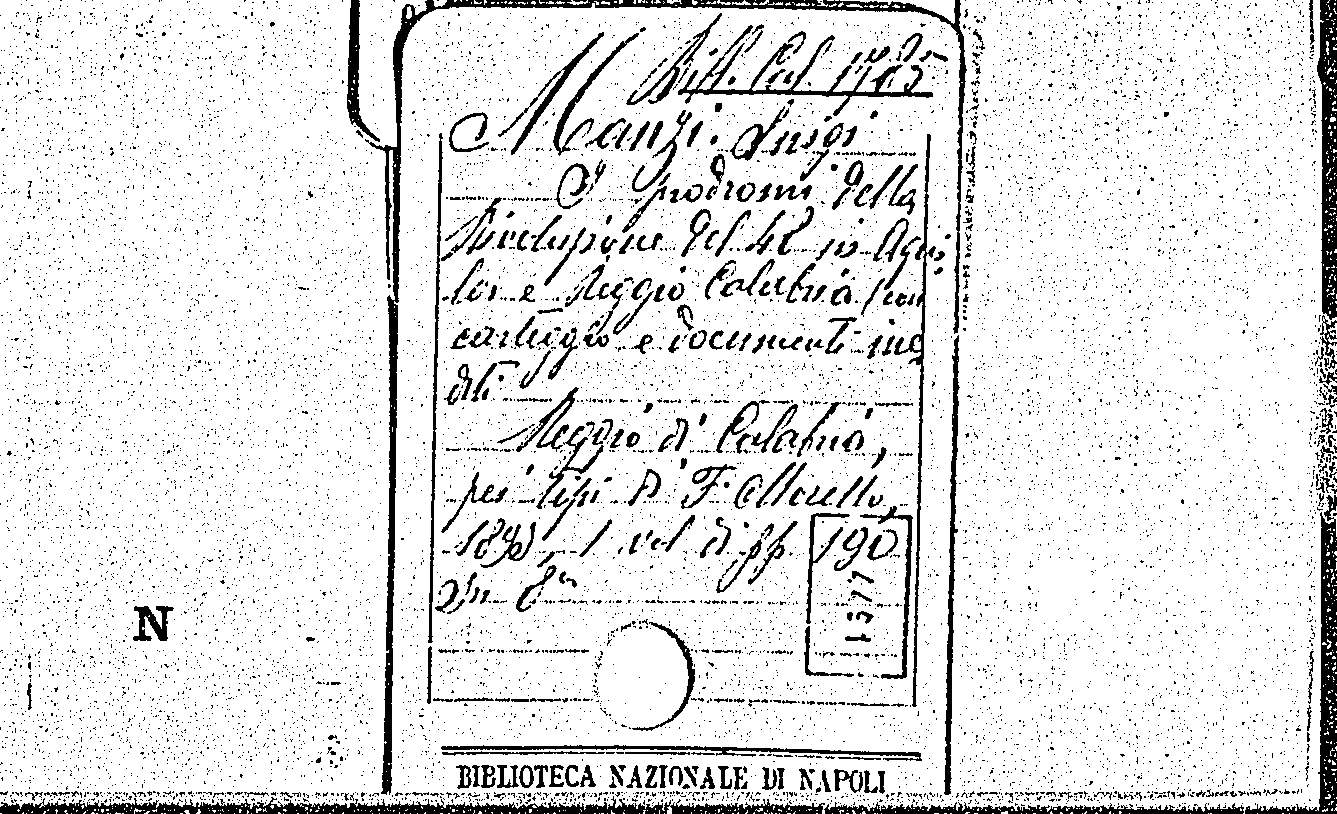 Bibl. Cal. 1785
Manzi. Luigi
I prodromi della
Rivoluzione del 48 in Aqui
la e Reggio Calabria con
carteggio e documenti ine
diti
Reggio di Calabria,
per tipi di F. Morello,
1893, 1 vol di pp 190
In 8º
1577
N
BIBLIOTECA NAZIONALE DI NAPOLI